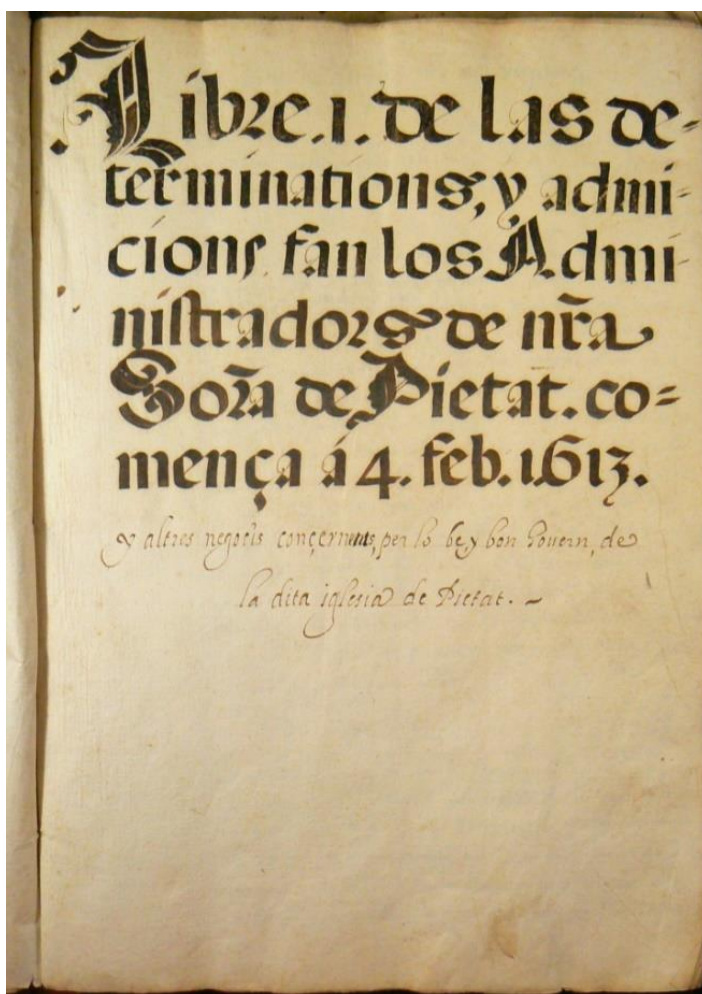 Libre .1. de las de-
terminations, y admi-
cions fan los Admi-
nistradors de nr̃a
Sor̃a de Pietat. co=
mença á 4. feb. 1613.
y altres negocis concernents, per lo be, y bon Govern, de
la dita iglesia de Pietat. -